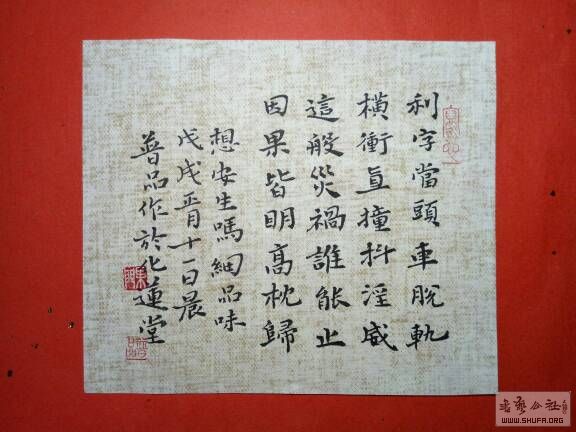 利字當頭車脫軌
橫衝直撞抖淫威
這般災禍誰能止
因果皆明高枕歸
想安生嗎細品味
戊戌酉月十一日晨
普品作於化蓮堂
WWW.SHUFA.ORG